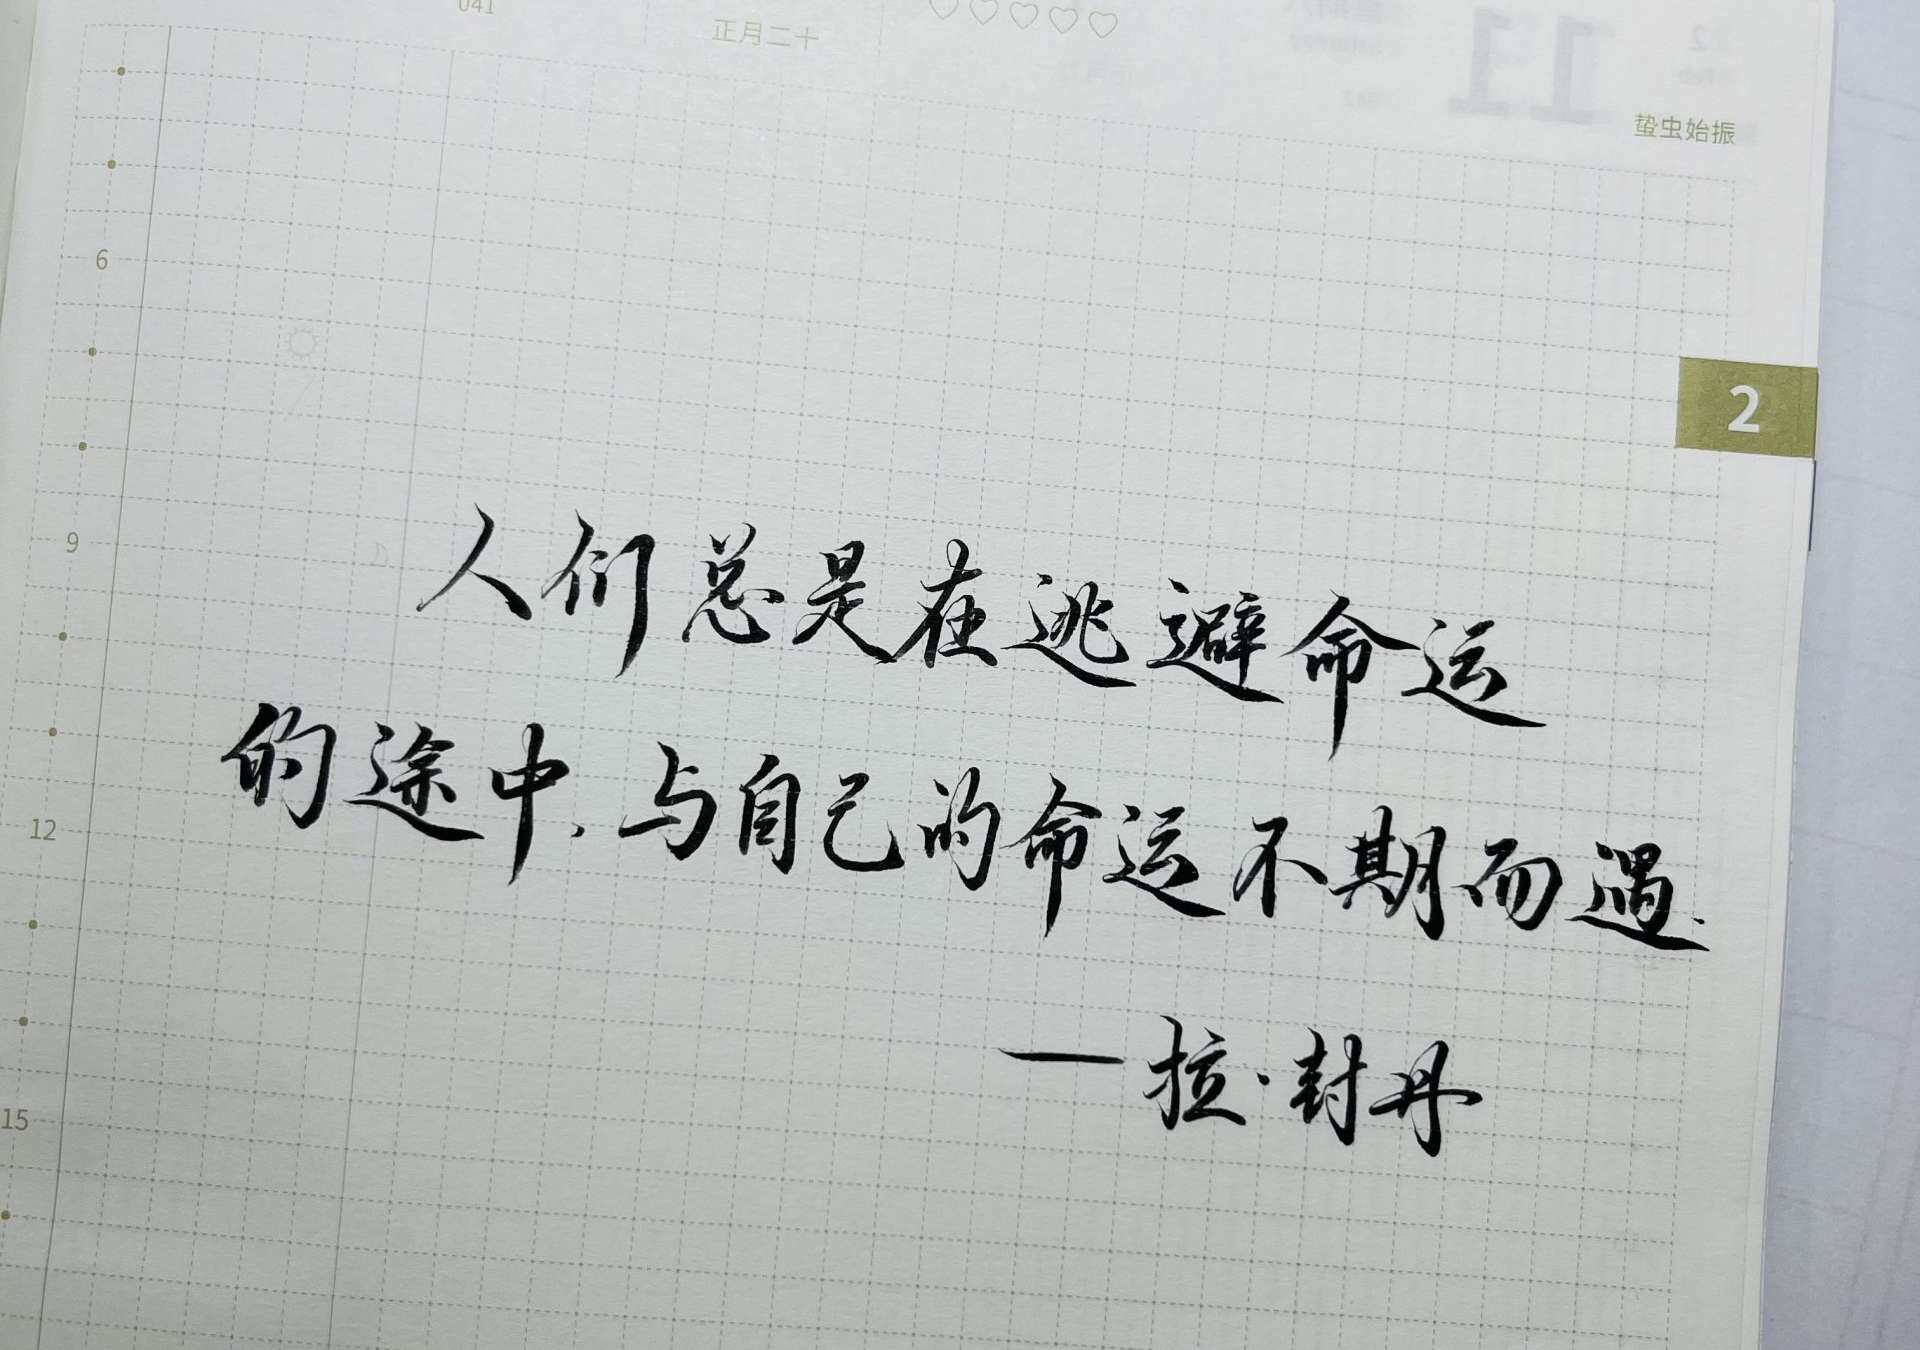 041
正月二十
蛰虫始振
2
6
9
12
15
人们总是在逃避命运
的途中，与自己的命运不期而遇.
—拉·封丹